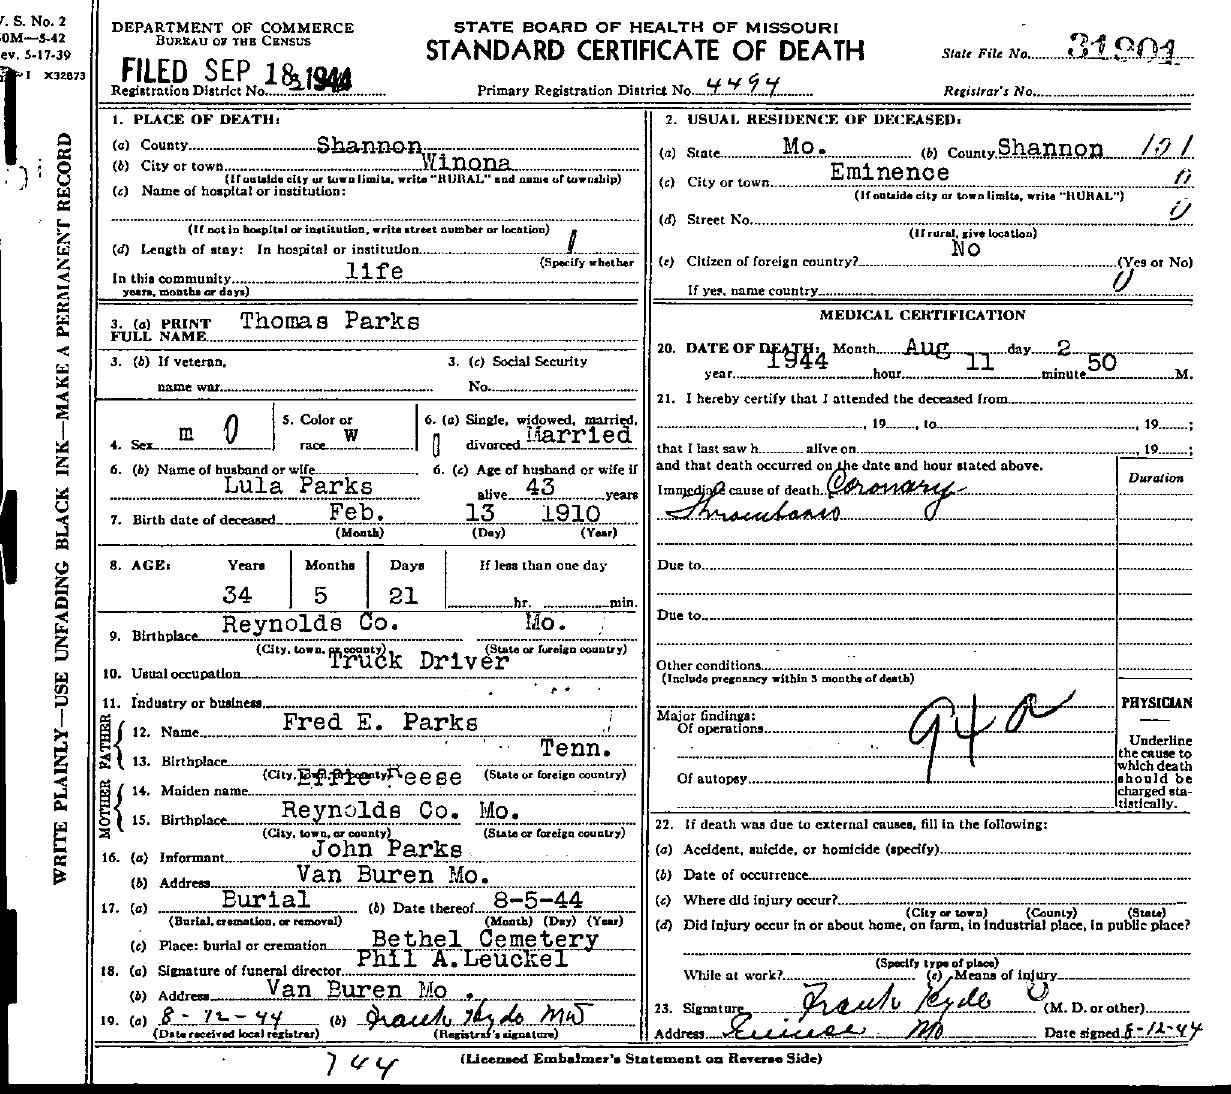 V. S. No. 2
50M—5-42
Rev. 5-17-39
I X32873
WRITE PLAINLY—USE UNFADING BLACK INK—MAKE A PERMANENT RECORD
DEPARTMENT OF COMMERCE
BUREAU OF THE CENSUS
STATE BOARD OF HEALTH OF MISSOURI
STANDARD CERTIFICATE OF DEATH
State File No. 31901
FILED SEP 18 1944
Registration District No.
Primary Registration District No. 4494
Registrar's No.
1. PLACE OF DEATH:
(a) County Shannon
(b) City or town Winona
(If outside city or town limits, write "RURAL" and name of township)
(c) Name of hospital or institution:
(If not in hospital or institution, write street number or location)
(d) Length of stay: In hospital or institution
(Specify whether
In this community life
years, months or days)
2. USUAL RESIDENCE OF DECEASED:
(a) State Mo. (b) County Shannon 101
(c) City or town Eminence 0
(If outside city or town limits, write "RURAL")
(d) Street No. 0
(If rural, give location)
(e) Citizen of foreign country? No (Yes or No)
If yes, name country 0
3. (a) PRINT FULL NAME Thomas Parks
3. (b) If veteran,
name war
3. (c) Social Security
No.
4. Sex m 0
5. Color or race W
6. (a) Single, widowed, married, divorced Married
6. (b) Name of husband or wife Lula Parks
6. (c) Age of husband or wife if alive 43 years
7. Birth date of deceased Feb. 13 1910
(Month) (Day) (Year)
8. AGE: Years Months Days If less than one day
34 5 21 hr. min.
9. Birthplace Reynolds Co. Mo.
(City, town, or county) (State or foreign country)
10. Usual occupation Truck Driver
11. Industry or business
FATHER
12. Name Fred E. Parks
13. Birthplace Tenn.
(City, town, or county) (State or foreign country)
MOTHER
14. Maiden name Effie Reese
15. Birthplace Reynolds Co. Mo.
(City, town, or county) (State or foreign country)
16. (a) Informant John Parks
(b) Address Van Buren Mo.
17. (a) Burial (b) Date thereof 8-5-44
(Burial, cremation, or removal) (Month) (Day) (Year)
(c) Place: burial or cremation Bethel Cemetery
18. (a) Signature of funeral director Phil A. Leuckel
(b) Address Van Buren Mo.
19. (a) 8-12-44 (b) Frank Hyde MD
(Date received local registrar) (Registrar's signature)
MEDICAL CERTIFICATION
20. DATE OF DEATH: Month Aug day 2
year 1944 hour 11 minute 50 M.
21. I hereby certify that I attended the deceased from
, 19 , to , 19 ;
that I last saw h alive on , 19 ;
and that death occurred on the date and hour stated above.
Duration
Immediate cause of death Coronary
Thrombosis
Due to
Due to
Other conditions
(Include pregnancy within 3 months of death)
Major findings:
Of operations
94 a
Of autopsy
PHYSICIAN
Underline
the cause to
which death
should be
charged sta-
tistically.
22. If death was due to external causes, fill in the following:
(a) Accident, suicide, or homicide (specify)
(b) Date of occurrence
(c) Where did injury occur?
(City or town) (County) (State)
(d) Did injury occur in or about home, on farm, in industrial place, in public place?
(Specify type of place)
While at work? (e) Means of injury 0
23. Signature Frank Hyde (M. D. or other)
Address Eminence Mo Date signed 8-12-44
744
(Licensed Embalmer's Statement on Reverse Side)